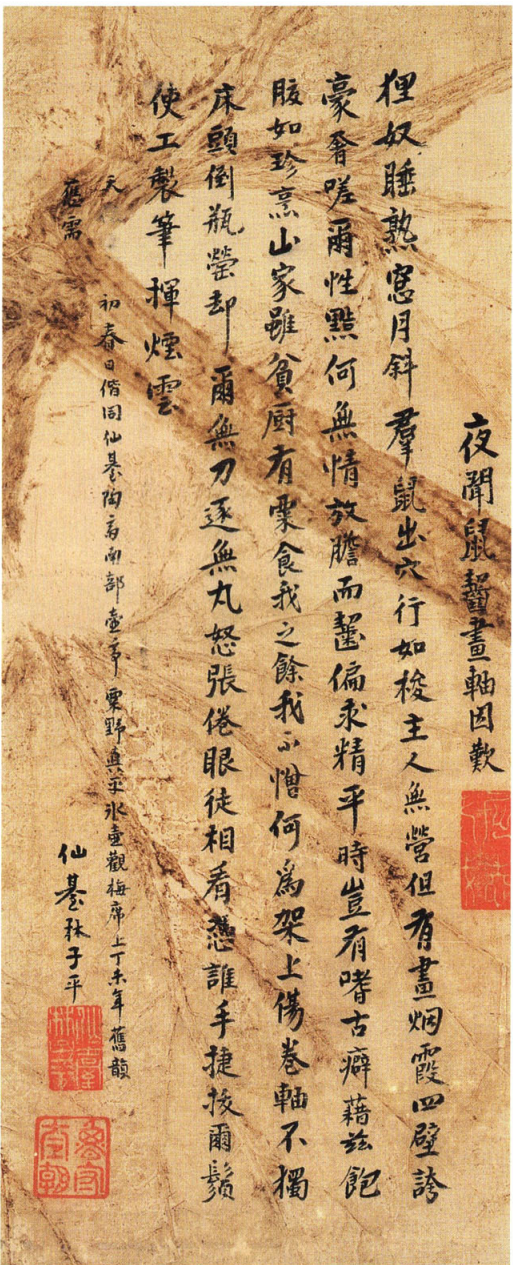 夜聞鼠齧畫軸因歎
狸奴睡熟窓月斜羣鼠出穴行如梭主人無營但有畫烟霞四壁誇
豪奢嗟爾性黠何無情放膽而齧偏求精平時豈有嗜古癖藉玆飽
腹如珍烹山家雖貧厨有粟食我之餘我不憎何爲架上傷卷軸不獨
床頭倒瓶罃却爾無刀逐無丸怒張倦眼徒相看憑誰手捷拔爾鬚
使工製筆揮煙雲
天
應需
初春日偕同仙臺陶斎南部壷亭粟野真平氷壷觀梅席上丁未年舊韻
仙臺 子平